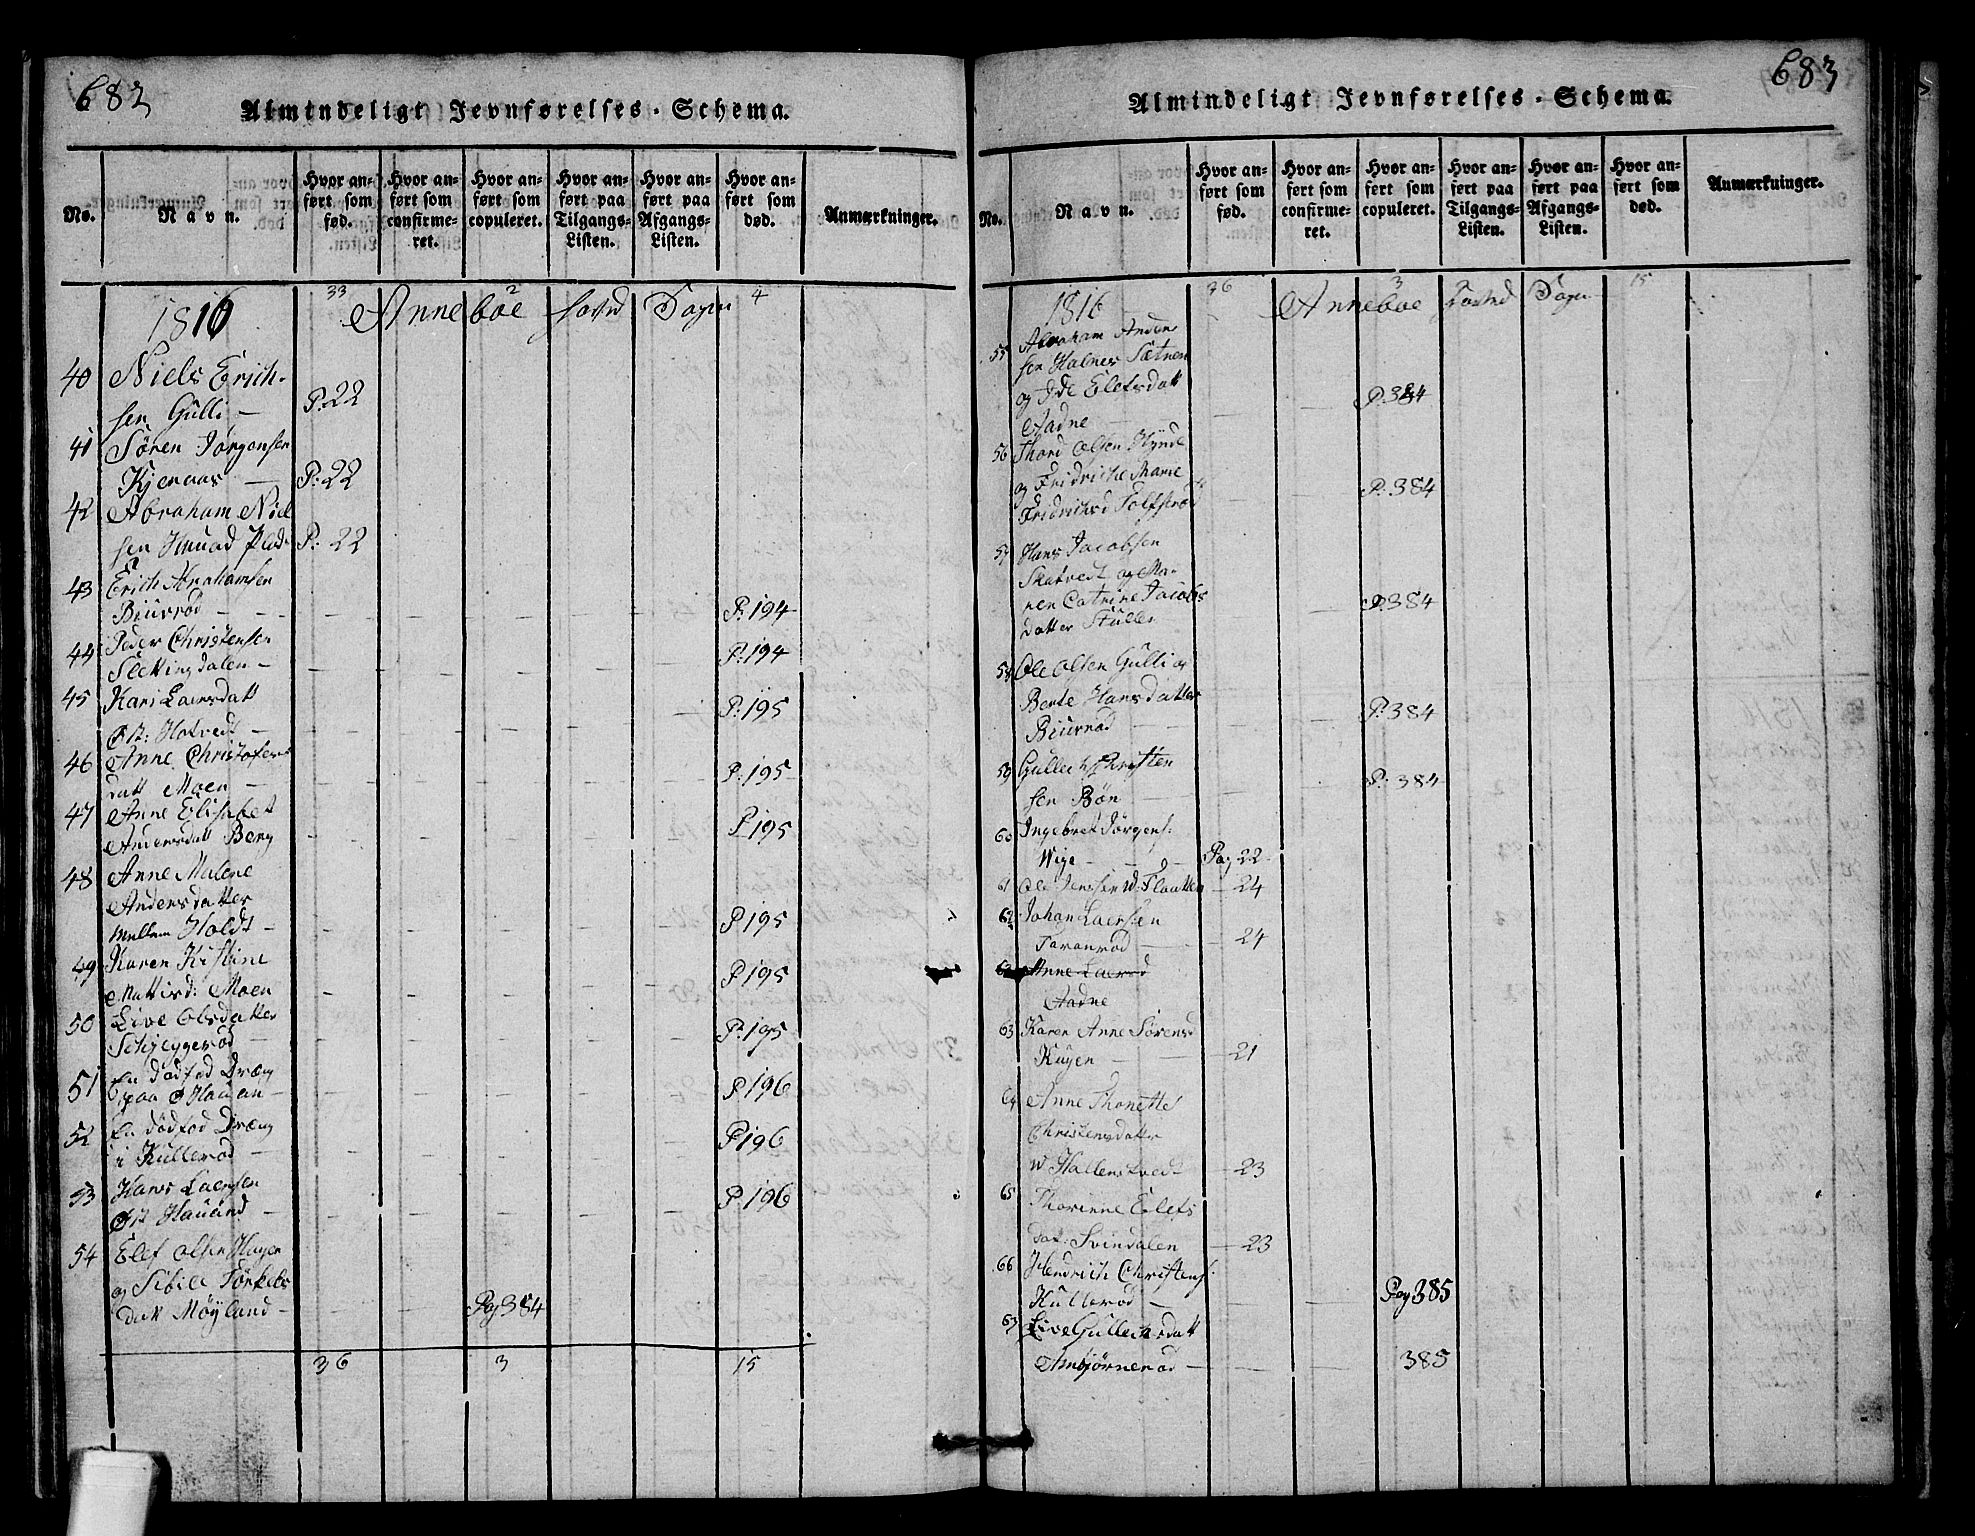 682
Almindeligt Jevnførelses-Schema.
No.
Navn.
Hvor anført som fød.
Hvor anført som confirmeret.
Hvor anført som copuleret.
Hvor anført paa Tilgangs-Listen.
Hvor anført paa Afgangs-Listen.
Hvor anført som død.
Anmærkninger.
33 2 4
1816 Anneboe Sogn
40 Niels Erich-
sen Gulli - P: 22
41 Sören Jörgensen
Kjernaas - P: 22
42 Abraham Niel
sen P: 22
43 Erich Abrahamsen
Biurrød - P: 194
44 Peder Christensen
Slettingdalen - P: 194
45 Kari Laersdatt
Øst: Hotvedt - P: 195
46 Anne Christofers
datt Moen - P: 195
47 Anne Elisabet
Andersdatt Berg P 195
48 Anne Malene
Andersdatter
mellem Holdt - P 195
49 Karen Kistine
Mattisd: Moen P 195
50 Live Olsdatter
Schjeggerød P: 195
51 En dödfød Dræng
paa Hauan - P 196
52 En dödfød Dræng
i Kullerød - P 196
53 Hans Laersen
Øst Hauand - P 196
54 Elef Olsen Hagen
og Sibile Törkels
datt Möyland - Pag 384
36 3 15
683
Almindeligt Jevnførelses-Schema.
No.
Navn.
Hvor anført som fød.
Hvor anført som confirmeret.
Hvor anført som copuleret.
Hvor anført paa Tilgangs-Listen.
Hvor anført paa Afgangs-Listen.
Hvor anført som død.
Anmærkninger.
36 3 15
1816 Anneboe Sogn
55 Abraham Anders
sen Halnes Sætner
og Ide Elefsdatt
Aadne P. 384
56 Thord Olsen
og Fridriche Marie
Fridrichsd P: 384
57 Hans Jacobsen
Skatvedt og Ma-
ren Catrine Jacobs
datter Stulen P 384
58 Ole Olsen Gulli og
Berte Hansdatter
Biurrød P: 384
59 Gullech Christen
sen Bön P: 384
60 Ingebret Jörgens:
Wige - Pag 22
61 Ole Jenssen W: Flaatten - 24
62 Johan Laersen
Taranrød - 24
63 Anne Laersd
Aadne
63 Karen Anne Sörensd
Hagen - 21
64 Anne Thonette
Christensdatter
W Hallenstvedt - 23
65 Thorinne Elefs
dat: Svindalen - 23
66 Hendrich Christens:
Kullerød - Pag 385
67 Live Gullechsdatt
Anbjörnerød - 385